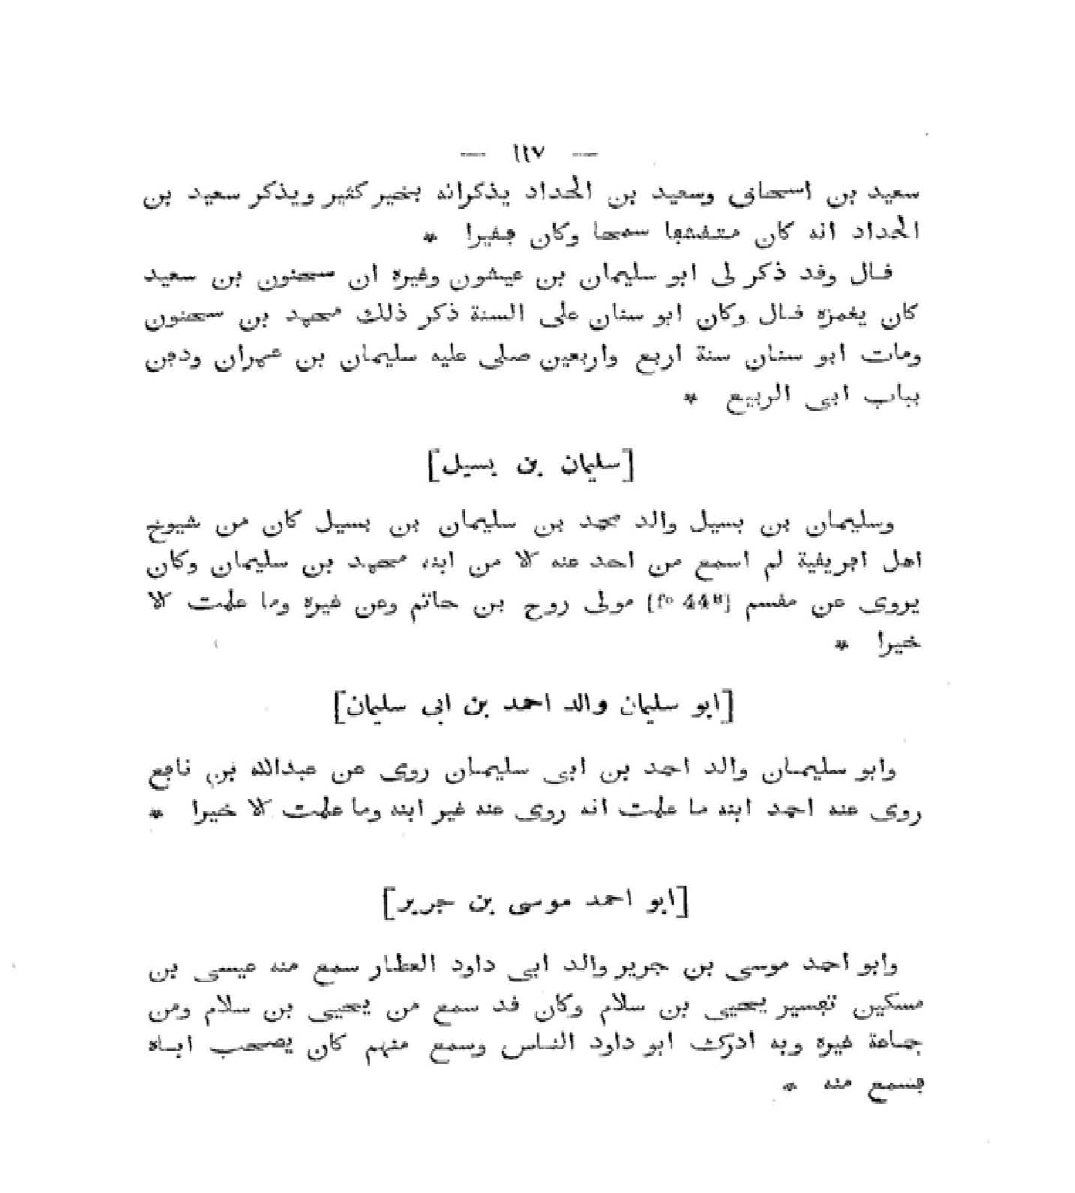 — ١١٧ —
سعيد بن اسحاق وسعيد بن الحداد يذكرانه بخير كثير ويذكر سعيد بن
الحداد انه كان متفقها سمحا وكان فقيرا *
قال وقد ذكر لى ابو سليمان بن عيشون وغيره ان سحنون بن سعيد
كان يغمزه قال وكان ابو سنان على السنة ذكر ذلك محمد بن سحنون
ومات ابو سنان سنة اربع واربعين صلى عليه سليمان بن عمران ودفن
بباب ابى الربيع *
[سليمان بن بسيل]
وسليمان بن بسيل والد محمد بن سليمان بن بسيل كان من شيوخ
اهل افريقية لم اسمع من احد عنه الا من ابنه محمد بن سليمان وكان
يروى عن مقسم [fº 44ᴮ] مولى روح بن حاتم وعن غيره وما علمت الا
خيرا *
[ابو سليمان والد احمد بن ابى سليمان]
وابو سليمان والد احمد بن ابى سليمان روى عن عبدالله بن نافع
روى عنه احمد ابنه ما علمت انه روى عنه غير ابنه وما علمت الا خيرا *
[ابو احمد موسى بن جرير]
وابو احمد موسى بن جرير والد ابى داود العطار سمع منه عيسى بن
مسكين تفسير يحيى بن سلام وكان قد سمع من يحيى بن سلام ومن
جماعة غيره وبه ادرك ابو داود الناس وسمع منهم كان يصحب اباه
فسمع منه *